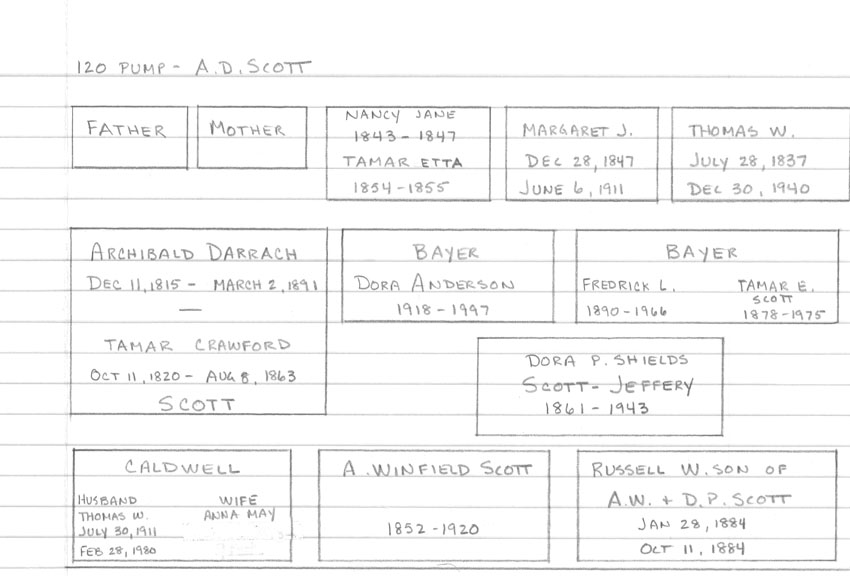 120 PUMP - A.D. SCOTT
FATHER
MOTHER
NANCY JANE
1843 - 1847
TAMAR ETTA
1854 - 1855
MARGARET J.
DEC 28, 1847
JUNE 6, 1911
THOMAS W.
JULY 28, 1837
DEC 30, 1940
ARCHIBALD DARRACH
DEC 11, 1815 - MARCH 2, 1891
—
TAMAR CRAWFORD
OCT 11, 1820 - AUG 8, 1863
SCOTT
BAYER
DORA ANDERSON
1918 - 1997
BAYER
FREDRICK L.
1890 - 1966
TAMAR E.
SCOTT
1878 - 1975
DORA P. SHIELDS
SCOTT - JEFFERY
1861 - 1943
CALDWELL
HUSBAND
THOMAS W.
JULY 30, 1911
FEB 28, 1980
WIFE
ANNA MAY
A. WINFIELD SCOTT
1852 - 1920
RUSSELL W. SON OF
A.W. + D.P. SCOTT
JAN 28, 1884
OCT 11, 1884